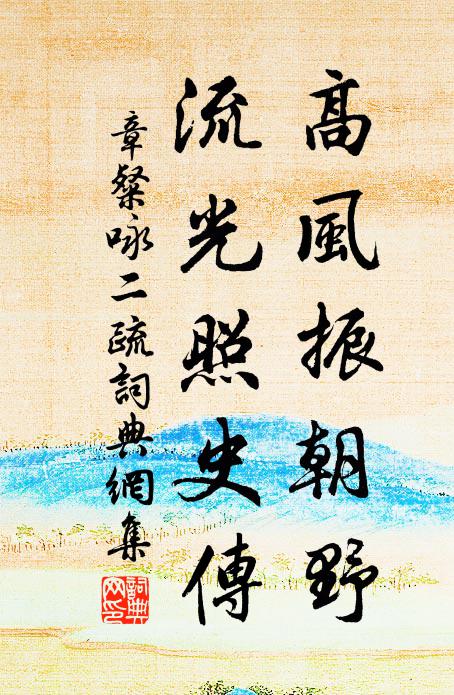 高風振朝野
流光照史傳
章粲咏二疏詞典網集